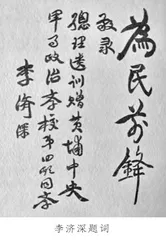 為民前鋒
敬录
總理遗训贈黄埔中央
军事政治学校第四期同学
李济深
李济深题词